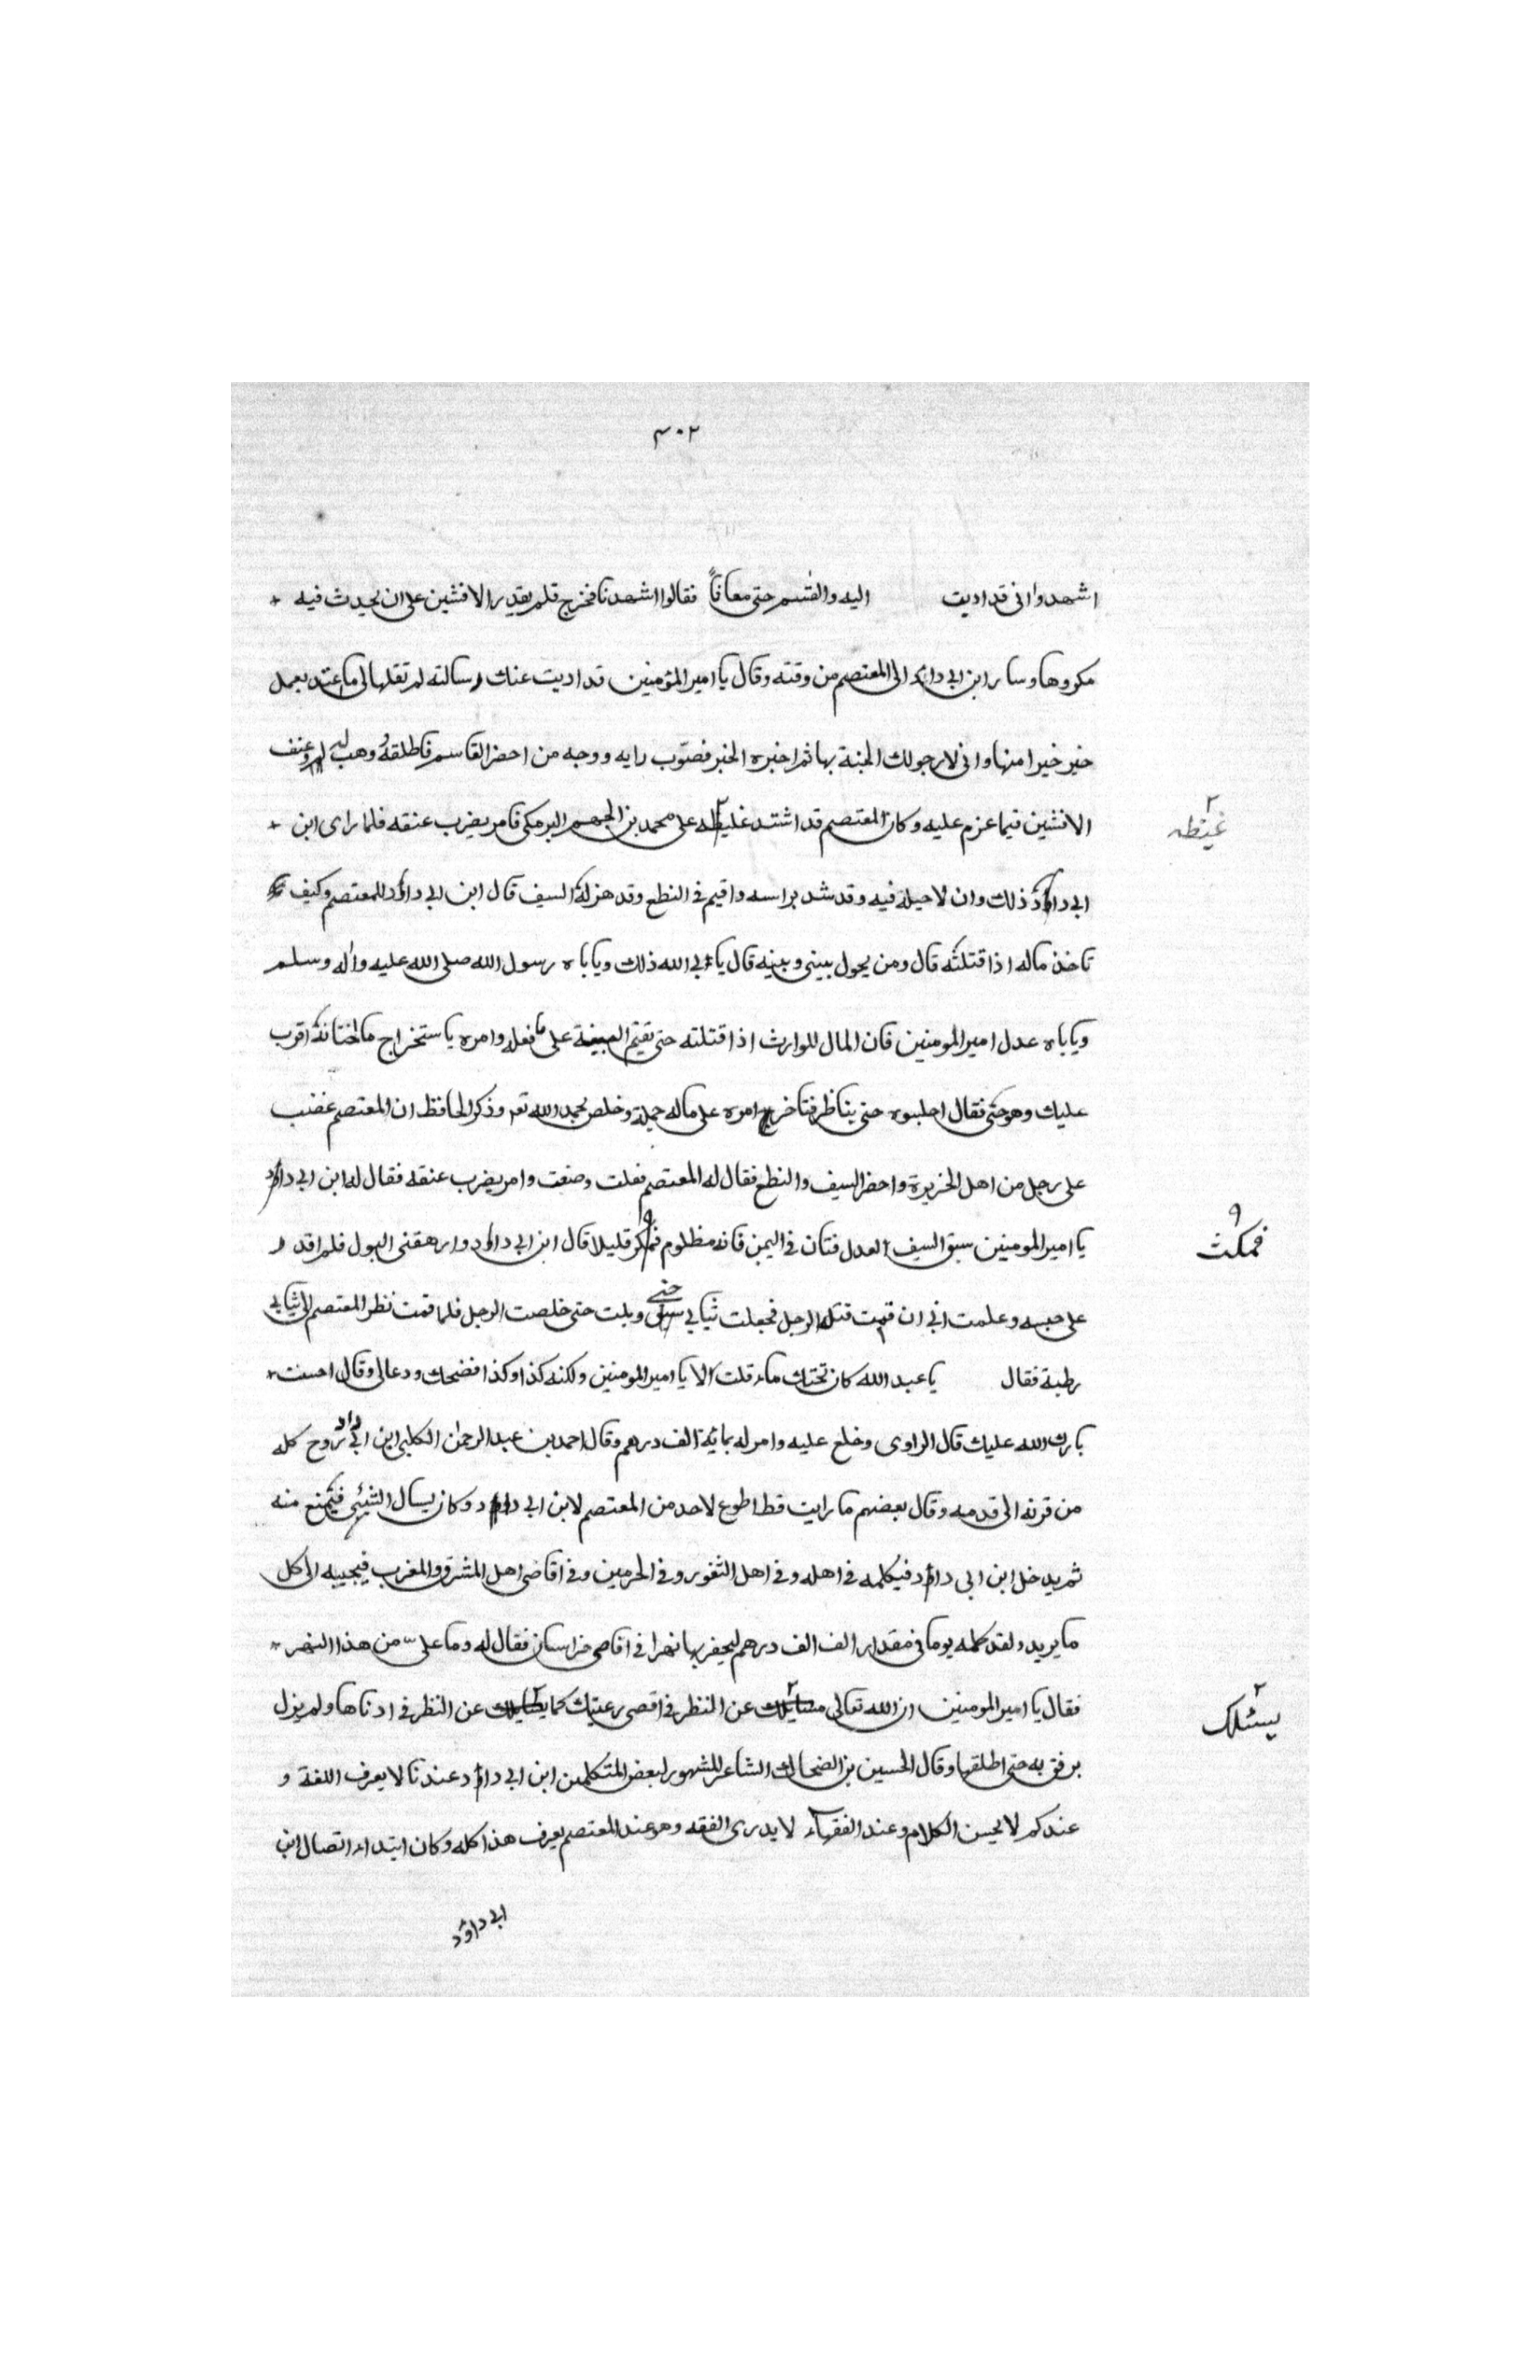 ٣٠٢
اشهدوا انى قد اديت اليه والقسم حتى معافاً فقالوا اشهدنا فخرج فلم يقدر الافشين على ان يحدث فيه
مكروها وسار ابن ابى داؤد الى المعتصم من وقته وقال يا امير المؤمنين قد اديت عنك رسالته لم تقلها لى ما اعتد بعمل
خير خيرا منها وانى لارجو لك الجنة بها ثم اخبره الخبر فصوّب رايه ووجه من احضر القاسم فاطلقه ووهب له وعنف
الافشين فيما عزم عليه وكان المعتصم قد اشتد غليظه على محمد بن الجهم البرمكى فامر بضرب عنقه فلما راى ابن
ابى داؤد ذلك وان لا حيلة فيه وقد شد براسه واقيم فى النطع وقد هز له السيف قال ابن ابى داؤد للمعتصم وكيف
تاخذ ماله اذا قتلته قال ومن يحول بينى وبينه قال يابى الله ذلك وياباه رسول الله صلى الله عليه واله وسلم
وياباه عدل امير المومنين فان المال للوارث اذا قتلته حتى تقيم البينة على ما فعله وامره ياستخراج ما اختانه اقرب
عليك وهو حى فقال احلبسوه حتى يناظر فتاخر امره على ماله حمله وخلص بحمد الله تع وذكر الحافظ ان المعتصم غضب
على رجل من اهل الخزيرة واحضر السيف والنطع فقال له المعتصم فعلت وصنعت وامر بضرب عنقه فقال له ابن ابى داؤد
يا امير المومنين سبق السيف العدل فتان فى اليمن فانه مظلوم قليلا قال ابن ابى داؤد وارهقنى البول فلم اقدر
على حبسه وعلمت انى ان قمت قتل الرجل فجعلت ثيابى تحتى وبلت حتى خلصت الرجل فلما قمت نظر المعتصم الى ثيابى
رطبة فقال يا عبد الله كان تحتك ماء قلت لا يا امير المومنين ولكنه كذا وكذا فضحك ودعا لى وقال احسنت
بارك الله عليك قال الراوى وخلع عليه وامر له بماية الف درهم وقال احمد بن عبد الرحمن الكلبى ابن ابى داؤد روح كله
من قرنه الى قدمه وقال بعضهم ما رايت قط اطوع لاحد من المعتصم لابن ابى داؤد وكان يسال الشئى فيمتنع منه
ثم يدخل ابن ابى داؤد فيكلمه فى اهله وفى اهل الثغور وفى الحرمين وفى اقاصى اهل المشرق والمغرب فيجيبه الى كل
ما يريد ولقد كلمه يوما فى مقدار الف الف درهم ليحفر بها نهرا فى اقاصى خراسان فقال له وما على من هذا النهر
فقال يا امير المومنين ان الله تعالى عن النظر فى اقصى رعيتك كما عن النظر فى ادناها ولم يزل
يرفق به حتى اطلقها وقال الحسين بن الضحاك الشاعر المشهور لبعض المتكلمين ابن ابى داؤد عندنا لا يعرف اللغة و
عندكم لا يحسن الكلام وعند الفقهاء لا يدرى الفقه وهو عند المعتصم يعرف هذا كله وكان ابتداء اتصال ابن
ابى داؤد
غيظه
فمكث
يسئلك